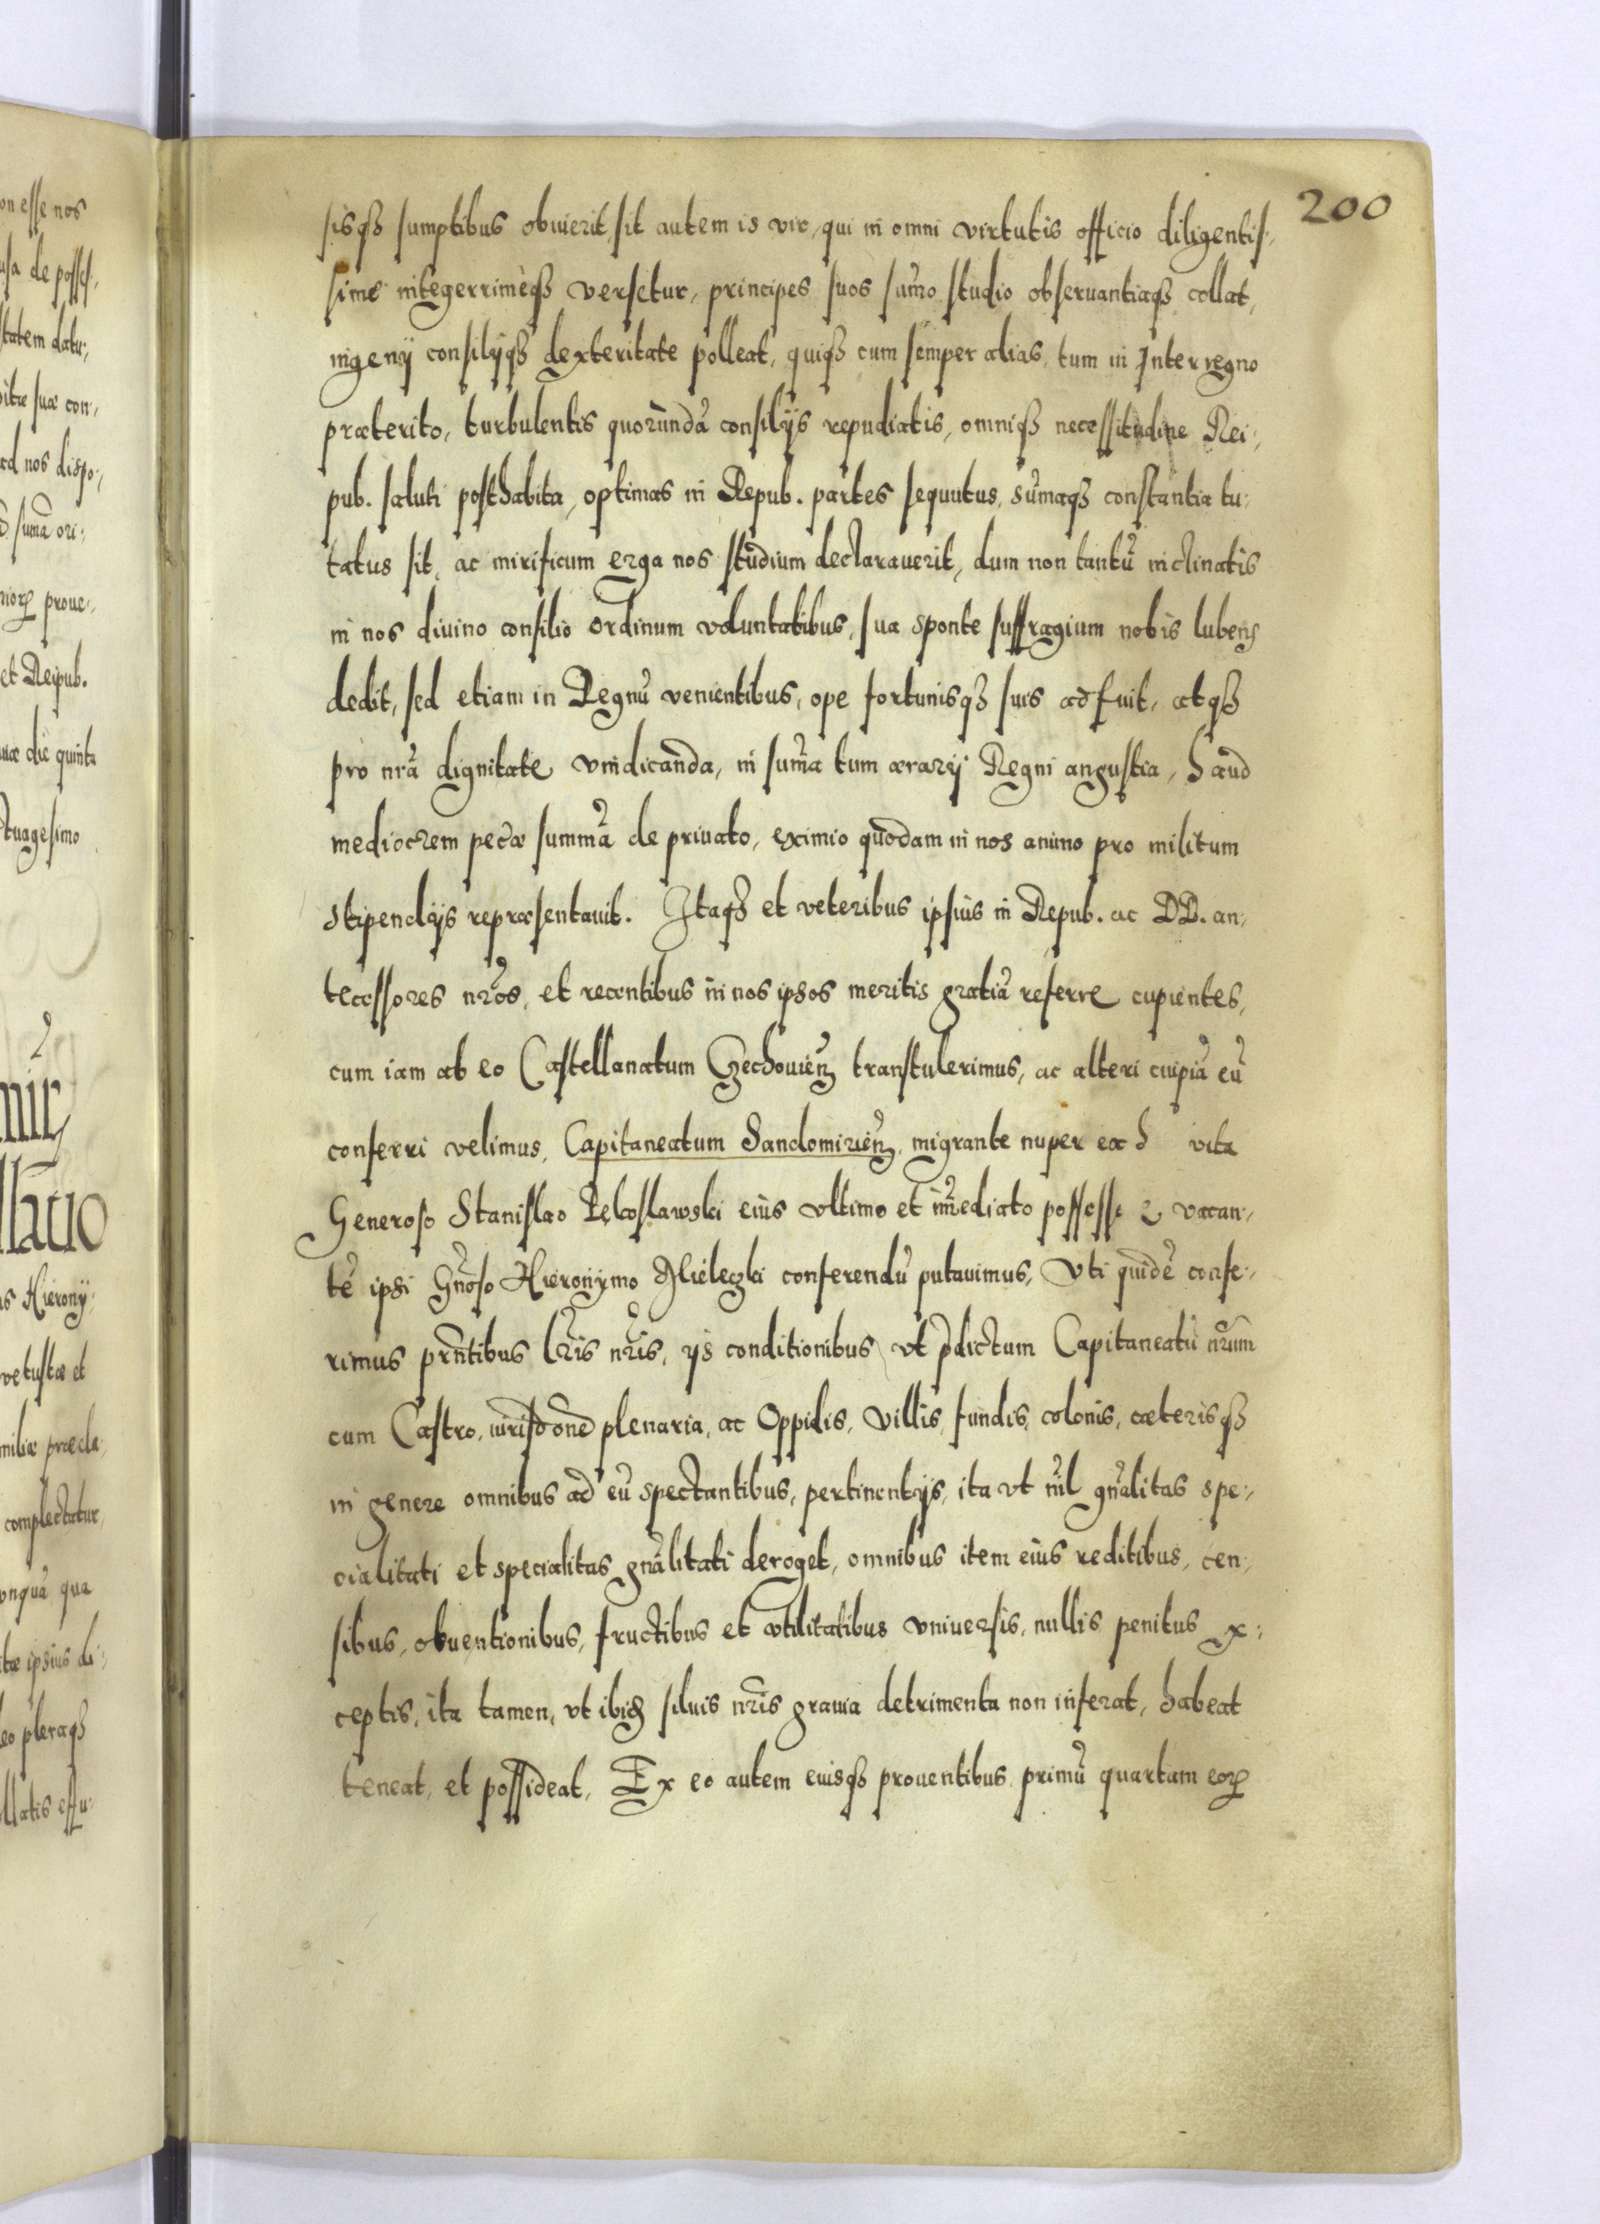 200
sisqȝ sumptibus obiuerit, sit autem is vir, qui in omni virtutis officio diligentis:
sime integerrimèqȝ versetur, principes suos sum̃o studio obseruantiaqȝ collat,
ingenij consilijqȝ dexteritate polleat, quiqȝ cum semper alias, tum in Interregno
præterito, turbulentis quorundã consilijs repudiatis, omniqȝ necessitudine Rei:
pub. saluti posthabita, optimas in Repub. partes sequutus, sum̃aqȝ constantia tu:
tatus sit, ac mirificum erga nos studium declarauerit, dum non tantũ inclinatis
in nos diuino consilio ordinum voluntatibus, sua sponte suffragium nobis lubens
dedit, sed etiam in Regnũ venientibus, ope fortunisqȝ suis adfuit, atqȝ
pro nrã dignitate vindicanda, in sum̃a tum ærarij Regni angustia, haud
mediocrem pecæ summã de priuato, eximio quodam in nos animo pro militum
stipendijs repræsentauit. Itaqȝ et veteribus ipsius in Repub. ac DD. an:
tecessores nrõs, et recentibus in nos ipsos meritis gratiã referre cupientes,
cum iam ab eo Castellanatum Czechouien̄ transtulerimus, ac alteri cuipiã eũ
conferri velimus, Capitaneatum Sandomirien̄, migrante nuper ex h vita
Generoso Stanislao Pękoslawski eius vltimo et im̃ediato possesse vacan:
tẽ ipsi Gñoso Hieronymo Mieleczki conferendũ putauimus, Vti quidẽ confe:
rimus prñtibus lr̃is nr̃is, ijs conditionibus, vt p̃dictum Capitaneatũ nr̃um
cum Castro, iurisdõne plenaria, ac Oppidis, Villis, fundis, colonis, cæterisqȝ
in genere omnibus ad eũ spectantibus, pertinentijs, ita vt nĩl gñalitas spe:
cialitati et specialitas gñalitati deroget, omnibus item eius reditibus, cen:
sibus, obuentionibus, fructibus et vtilitatibus vniuersis, nullis penitus ex:
ceptis, ita tamen, vt ibiȝ siluis nr̃is grauia detrimenta non inferat, habeat
teneat, et possideat, Ex eo autem eiusqȝ prouentibus primũ quartam eorꝝ